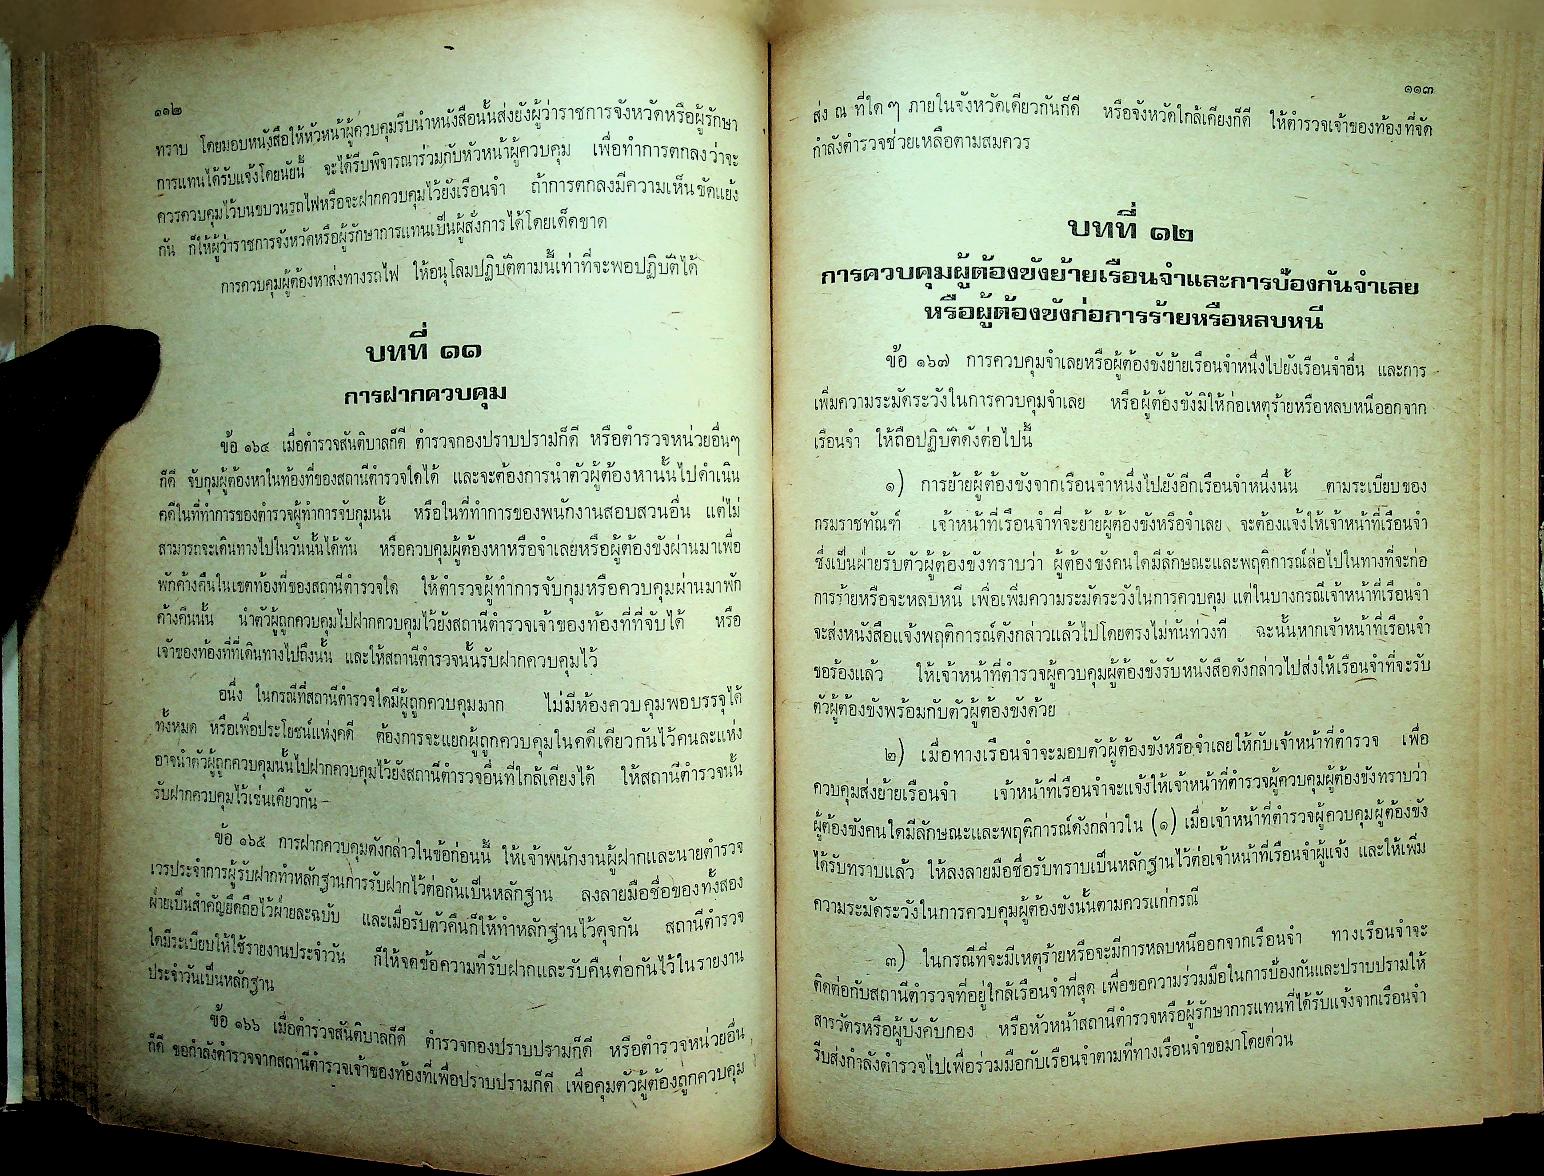 ๑๑๒
ทราบ โดยมอบหนังสือให้หัวหน้าผู้ควบคุมรีบนำหนังสือนั้นส่งยังผู้ว่าราชการจังหวัดหรือผู้รักษา
การแทนได้รับแจ้งโดยนัยนี้ จะได้รีบพิจารณาร่วมกับหัวหน้าผู้ควบคุม เพื่อทำการตกลงว่าจะ
ควรควบคุมไว้บนขบวนรถไฟหรือจะฝากควบคุมไว้ยังเรือนจำ ถ้าการตกลงมีความเห็นขัดแย้ง
กัน ก็ให้ผู้ว่าราชการจังหวัดหรือผู้รักษาการแทนเป็นผู้สั่งการได้โดยเด็ดขาด
การควบคุมผู้ต้องหาส่งทางรถไฟ ให้อนุโลมปฏิบัติตามนี้เท่าที่จะพอปฏิบัติได้
บทที่ ๑๑
การฝากควบคุม
ข้อ ๑๖๔ เมื่อตำรวจสันติบาลก็ดี ตำรวจกองปราบปรามก็ดี หรือตำรวจหน่วยอื่นๆ
ก็ดี จับกุมผู้ต้องหาในท้องที่ของสถานีตำรวจใดได้ และจะต้องการนำตัวผู้ต้องหานั้นไปดำเนิน
คดีในที่ทำการของตำรวจผู้ทำการจับกุมนั้น หรือในที่ทำการของพนักงานสอบสวนอื่น แต่ไม่
สามารถจะเดินทางไปในวันนั้นได้ทัน หรือควบคุมผู้ต้องหาหรือจำเลยหรือผู้ต้องขังผ่านมาเพื่อ
พักค้างคืนในเขตท้องที่ของสถานีตำรวจใด ให้ตำรวจผู้ทำการจับกุมหรือควบคุมผ่านมาพัก
ค้างคืนนั้น นำตัวผู้ถูกควบคุมไปฝากควบคุมไว้ยังสถานีตำรวจเจ้าของท้องที่ที่จับได้ หรือ
เจ้าของท้องที่ที่เดินทางไปถึงนั้น และให้สถานีตำรวจนั้นรับฝากควบคุมไว้
อนึ่ง ในกรณีที่สถานีตำรวจใดมีผู้ถูกควบคุมมาก ไม่มีห้องควบคุมพอบรรจุได้
ทั้งหมด หรือเพื่อประโยชน์แห่งคดี ต้องการจะแยกผู้ถูกควบคุมในคดีเดียวกันไว้คนละแห่ง
อาจนำตัวผู้ถูกควบคุมนั้นไปฝากควบคุมไว้ยังสถานีตำรวจอื่นที่ใกล้เคียงได้ ให้สถานีตำรวจนั้น
รับฝากควบคุมไว้เช่นเดียวกัน
ข้อ ๑๖๕ การฝากควบคุมดังกล่าวในข้อก่อนนี้ ให้เจ้าพนักงานผู้ฝากและนายตำรวจ
เวรประจำการผู้รับฝากทำหลักฐานการรับฝากไว้ต่อกันเป็นหลักฐาน ลงลายมือชื่อของทั้งสอง
ฝ่ายเป็นสำคัญยึดถือไว้ฝ่ายละฉบับ และเมื่อรับตัวคืนก็ให้ทำหลักฐานไว้ดุจกัน สถานีตำรวจ
ใดมีระเบียบให้ใช้รายงานประจำวัน ก็ให้จดข้อความที่รับฝากและรับคืนต่อกันไว้ในรายงาน
ประจำวันเป็นหลักฐาน
ข้อ ๑๖๖ เมื่อตำรวจสันติบาลก็ดี ตำรวจกองปราบปรามก็ดี หรือตำรวจหน่วยอื่น
ก็ดี ขอกำลังตำรวจจากสถานีตำรวจเจ้าของท้องที่เพื่อปราบปรามก็ดี เพื่อคุมตัวผู้ต้องถูกควบคุม
๑๑๓
ส่ง ณ ที่ใดๆ ภายในจังหวัดเดียวกันก็ดี หรือจังหวัดใกล้เคียงก็ดี ให้ตำรวจเจ้าของท้องที่จัด
กำลังตำรวจช่วยเหลือตามสมควร
บทที่ ๑๒
การควบคุมผู้ต้องขังย้ายเรือนจำและการป้องกันจำเลย
หรือผู้ต้องขังก่อการร้ายหรือหลบหนี
ข้อ ๑๖๗ การควบคุมจำเลยหรือผู้ต้องขังย้ายเรือนจำหนึ่งไปยังเรือนจำอื่น และการ
เพิ่มความระมัดระวังในการควบคุมจำเลย หรือผู้ต้องขังมิให้ก่อเหตุร้ายหรือหลบหนีออกจาก
เรือนจำ ให้ถือปฏิบัติดังต่อไปนี้
๑) การย้ายผู้ต้องขังจากเรือนจำหนึ่งไปยังอีกเรือนจำหนึ่งนั้น ตามระเบียบของ
กรมราชทัณฑ์ เจ้าหน้าที่เรือนจำที่จะย้ายผู้ต้องขังหรือจำเลย จะต้องแจ้งให้เจ้าหน้าที่เรือนจำ
ซึ่งเป็นฝ่ายรับตัวผู้ต้องขังทราบว่า ผู้ต้องขังคนใดมีลักษณะและพฤติการณ์ส่อไปในทางที่จะก่อ
การร้ายหรือจะหลบหนี เพื่อเพิ่มความระมัดระวังในการควบคุม แต่ในบางกรณีเจ้าหน้าที่เรือนจำ
จะส่งหนังสือแจ้งพฤติการณ์ดังกล่าวแล้วไปโดยตรงไม่ทันท่วงที ฉะนั้นหากเจ้าหน้าที่เรือนจำ
ขอร้องแล้ว ให้เจ้าหน้าที่ตำรวจผู้ควบคุมผู้ต้องขังรับหนังสือดังกล่าวไปส่งให้เรือนจำที่จะรับ
ตัวผู้ต้องขังพร้อมกับตัวผู้ต้องขังด้วย
๒) เมื่อทางเรือนจำจะมอบตัวผู้ต้องขังหรือจำเลยให้กับเจ้าหน้าที่ตำรวจ เพื่อ
ควบคุมส่งย้ายเรือนจำ เจ้าหน้าที่เรือนจำจะแจ้งให้เจ้าหน้าที่ตำรวจผู้ควบคุมผู้ต้องขังทราบว่า
ผู้ต้องขังคนใดมีลักษณะและพฤติการณ์ดังกล่าวใน (๑) เมื่อเจ้าหน้าที่ตำรวจผู้ควบคุมผู้ต้องขัง
ได้รับทราบแล้ว ให้ลงลายมือชื่อรับทราบเป็นหลักฐานไว้ต่อเจ้าหน้าที่เรือนจำผู้แจ้ง และให้เพิ่ม
ความระมัดระวังในการควบคุมผู้ต้องขังนั้นตามควรแก่กรณี
๓) ในกรณีที่จะมีเหตุร้ายหรือจะมีการหลบหนีออกจากเรือนจำ ทางเรือนจำจะ
ติดต่อกับสถานีตำรวจที่อยู่ใกล้เรือนจำที่สุด เพื่อขอความร่วมมือในการป้องกันและปราบปรามให้
สารวัตรหรือผู้บังคับกอง หรือหัวหน้าสถานีตำรวจหรือผู้รักษาการแทนที่ได้รับแจ้งจากเรือนจำ
รีบส่งกำลังตำรวจไปเพื่อร่วมมือกับเรือนจำตามที่ทางเรือนจำขอมาโดยด่วน